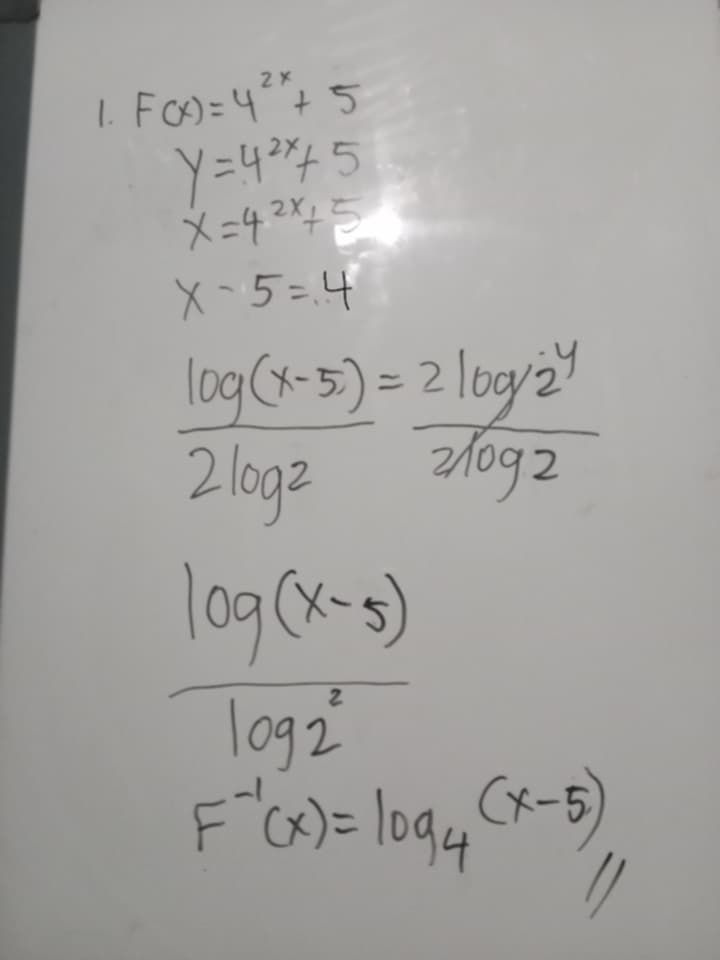 1. F(x)=4^2x + 5
y=4^2x+5
x=4^2x+5
x-5=4
log(x-5) = 2 log 2^y
2 log2 2log2
log(x-5)
log2^2
F^-1(x)= log_4 (x-5) //